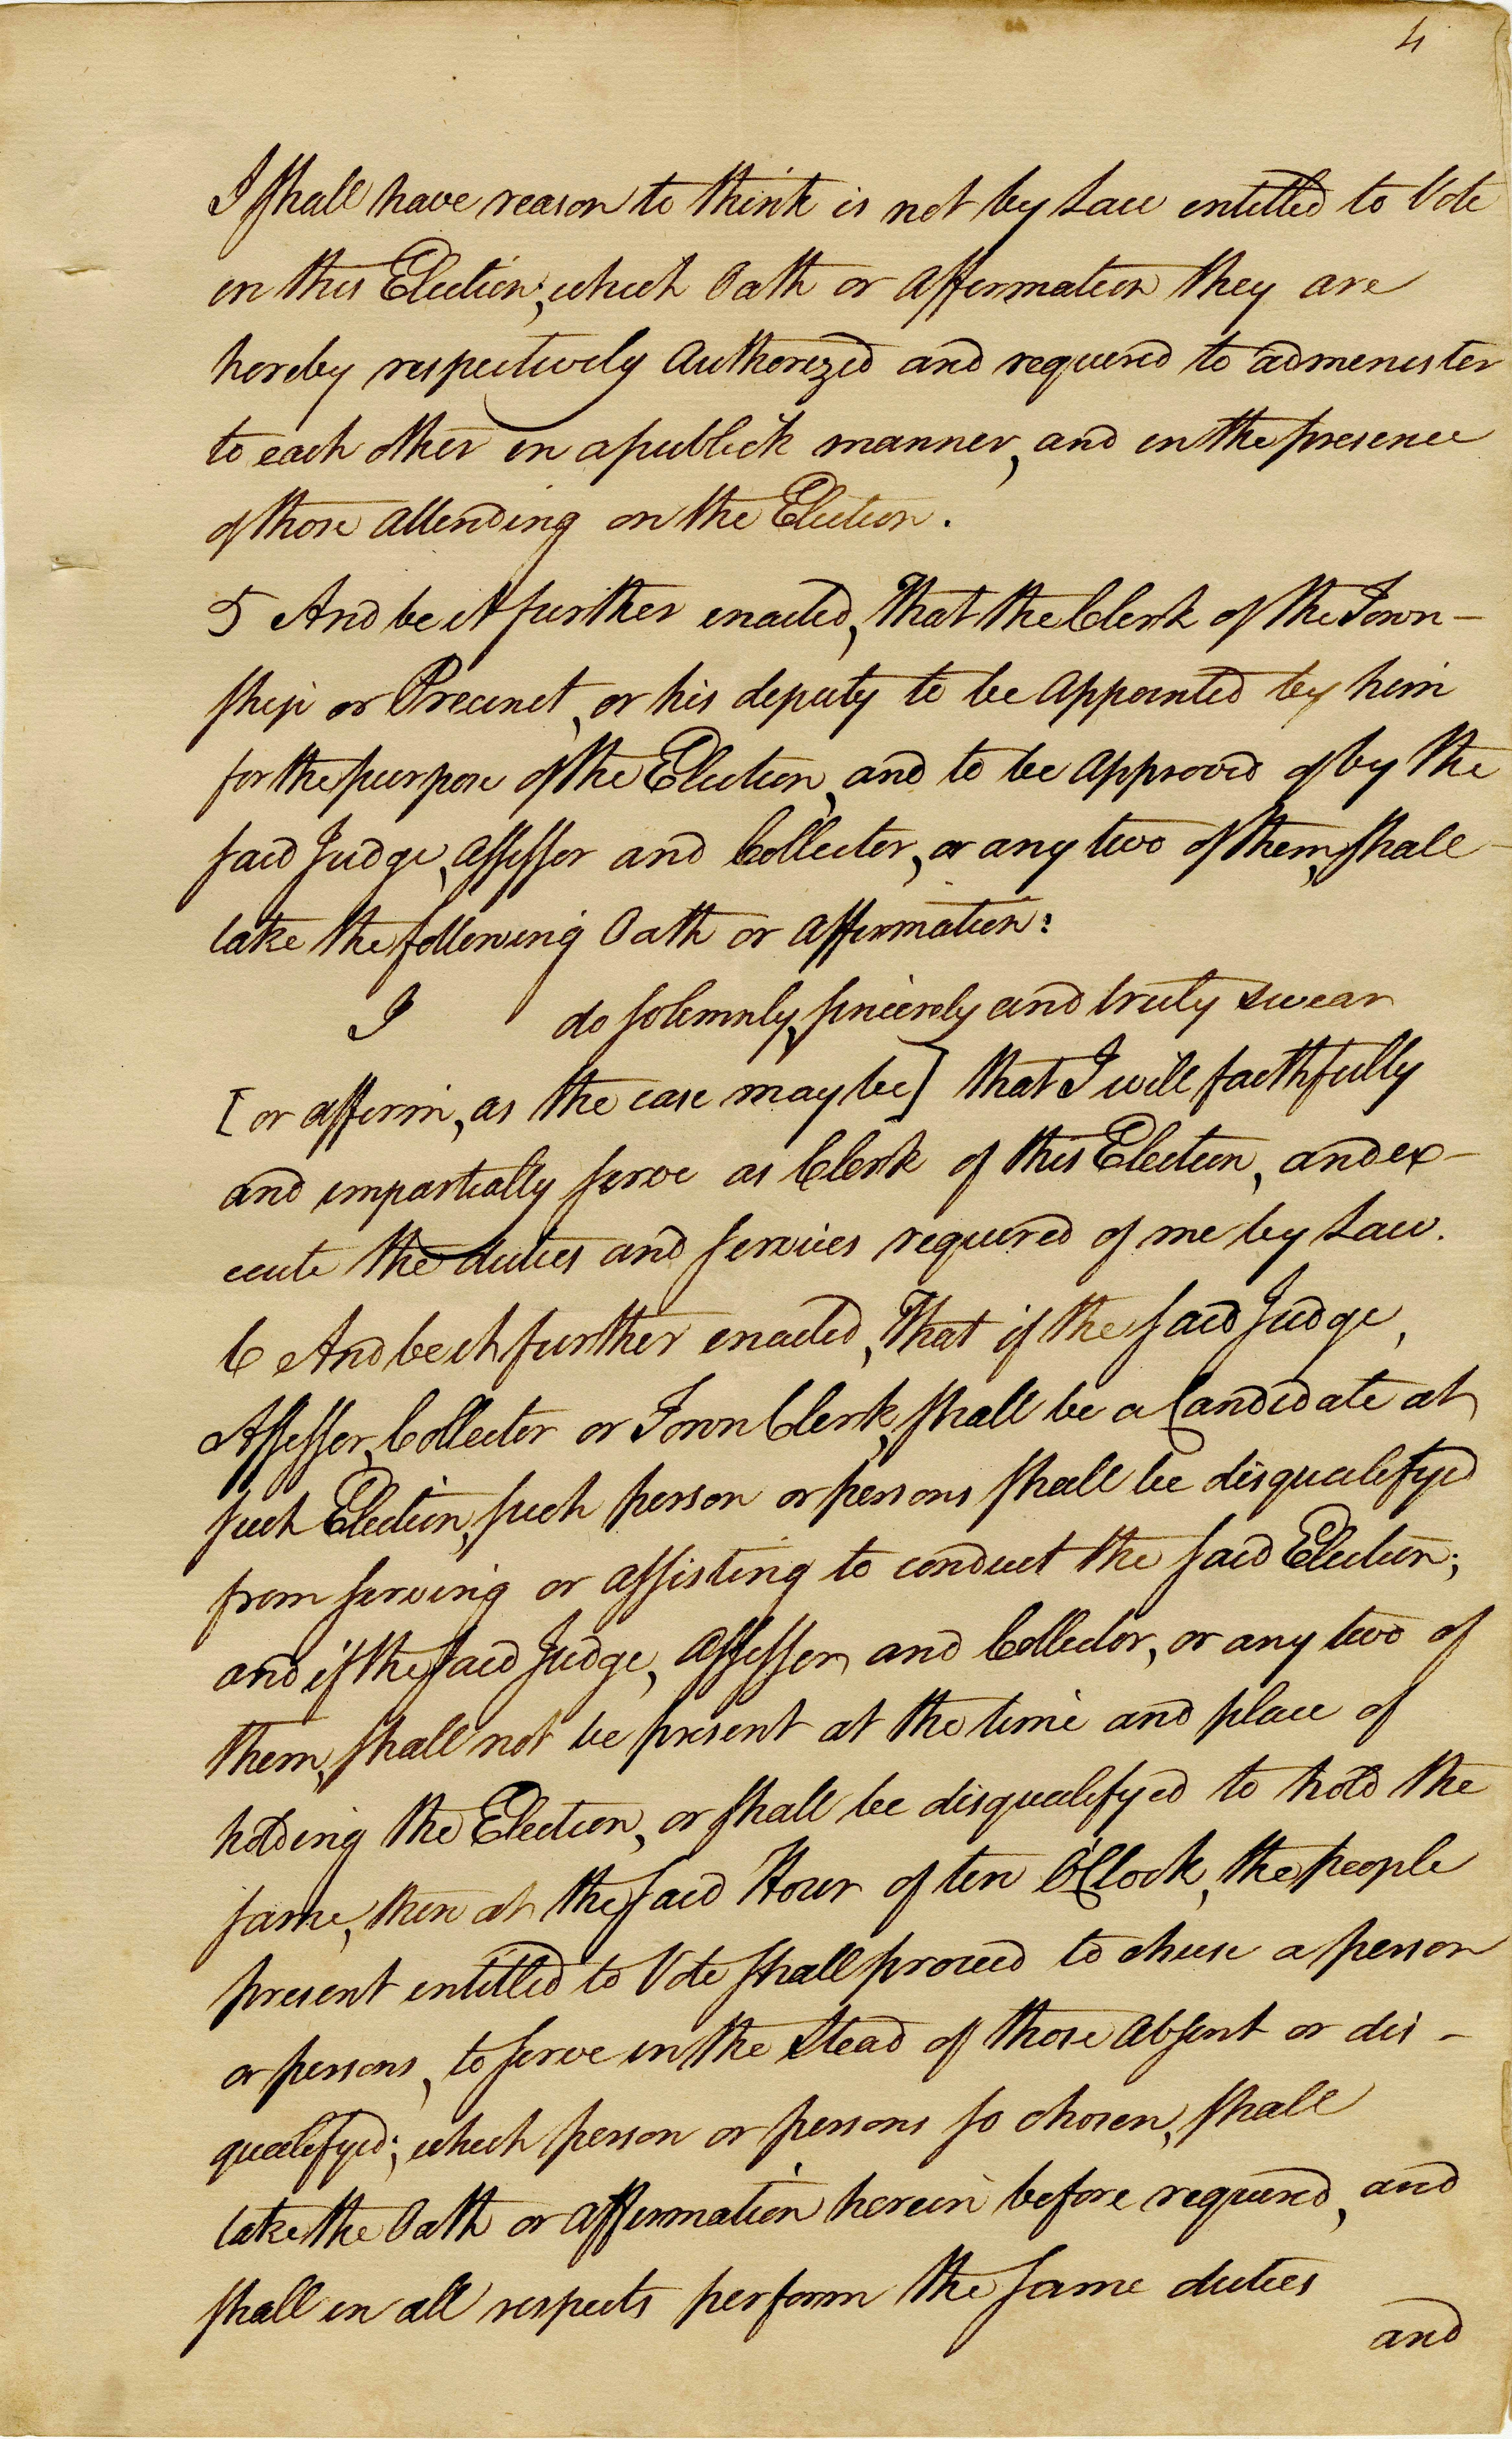 4
I shall have reason to think is not by Law entitled to Vote
in this Election; which Oath or affirmation they are
hereby respectively authorized and required to administer
to each other in a publick manner, and in the presence
of those attending on the Election.
5 And be it further enacted, That the Clerk of the Town-
ship or Precinct, or his deputy to be appointed by him
for the purpose of the Election, and to be approved of by the
said Judge, assessor and Collector, or any two of them, shall
take the following Oath or affirmation:
I do solemnly, sincerely and truly swear
[or affirm, as the case may be] that I will faithfully
and impartially serve as Clerk of this Election, and ex-
ecute the duties and services required of me by Law.
6 And be it further enacted, That if the said Judge,
Assessor, Collector or Town Clerk, shall be a Candidate at
such Election, such person or persons shall be disqualifyed
from serving or assisting to conduct the said Election;
and if the said Judge, assessor and Collector, or any two of
them, shall not be present at the time and place of
holding the Election, or shall be disqualifyed to hold the
same, then at the said Hour of ten O'Clock, the people
present entitled to Vote shall proceed to chuse a person
or persons, to serve in the stead of those absent or dis-
qualifyed; which person or persons so chosen, shall
take the Oath or affirmation herein before required, and
shall in all respects perform the same duties
and